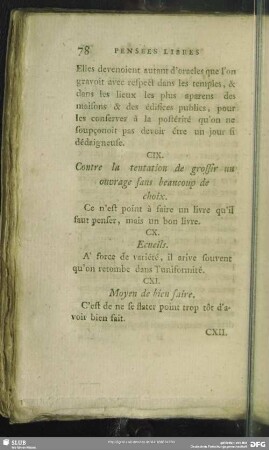 78 PENSEES LIBUES
Elles devenoient autant d'oracles que l'on
gravoit avec respect dans les temples, &
dans les lieux les plus aparens des
maisons & des édifices publics, pour
les conserver à la postérité qu'on ne
soupçonnoit pas devoir être un jour si
dédaigneuse.
CIX.
Contre la tentation de grossir un
ouvrage sans beaucoup de
choix.
Ce n'est point à faire un livre qu'il
faut penser, mais un bon livre.
CX.
Ecueils.
A' force de varieté, il arive souvent
qu'on retombe dans l'uniformité.
CXI.
Moyen de bien faire.
C'est de ne se flater point trop tôt d'a-
voir bien fait.
CXII.
SLUB
DFG